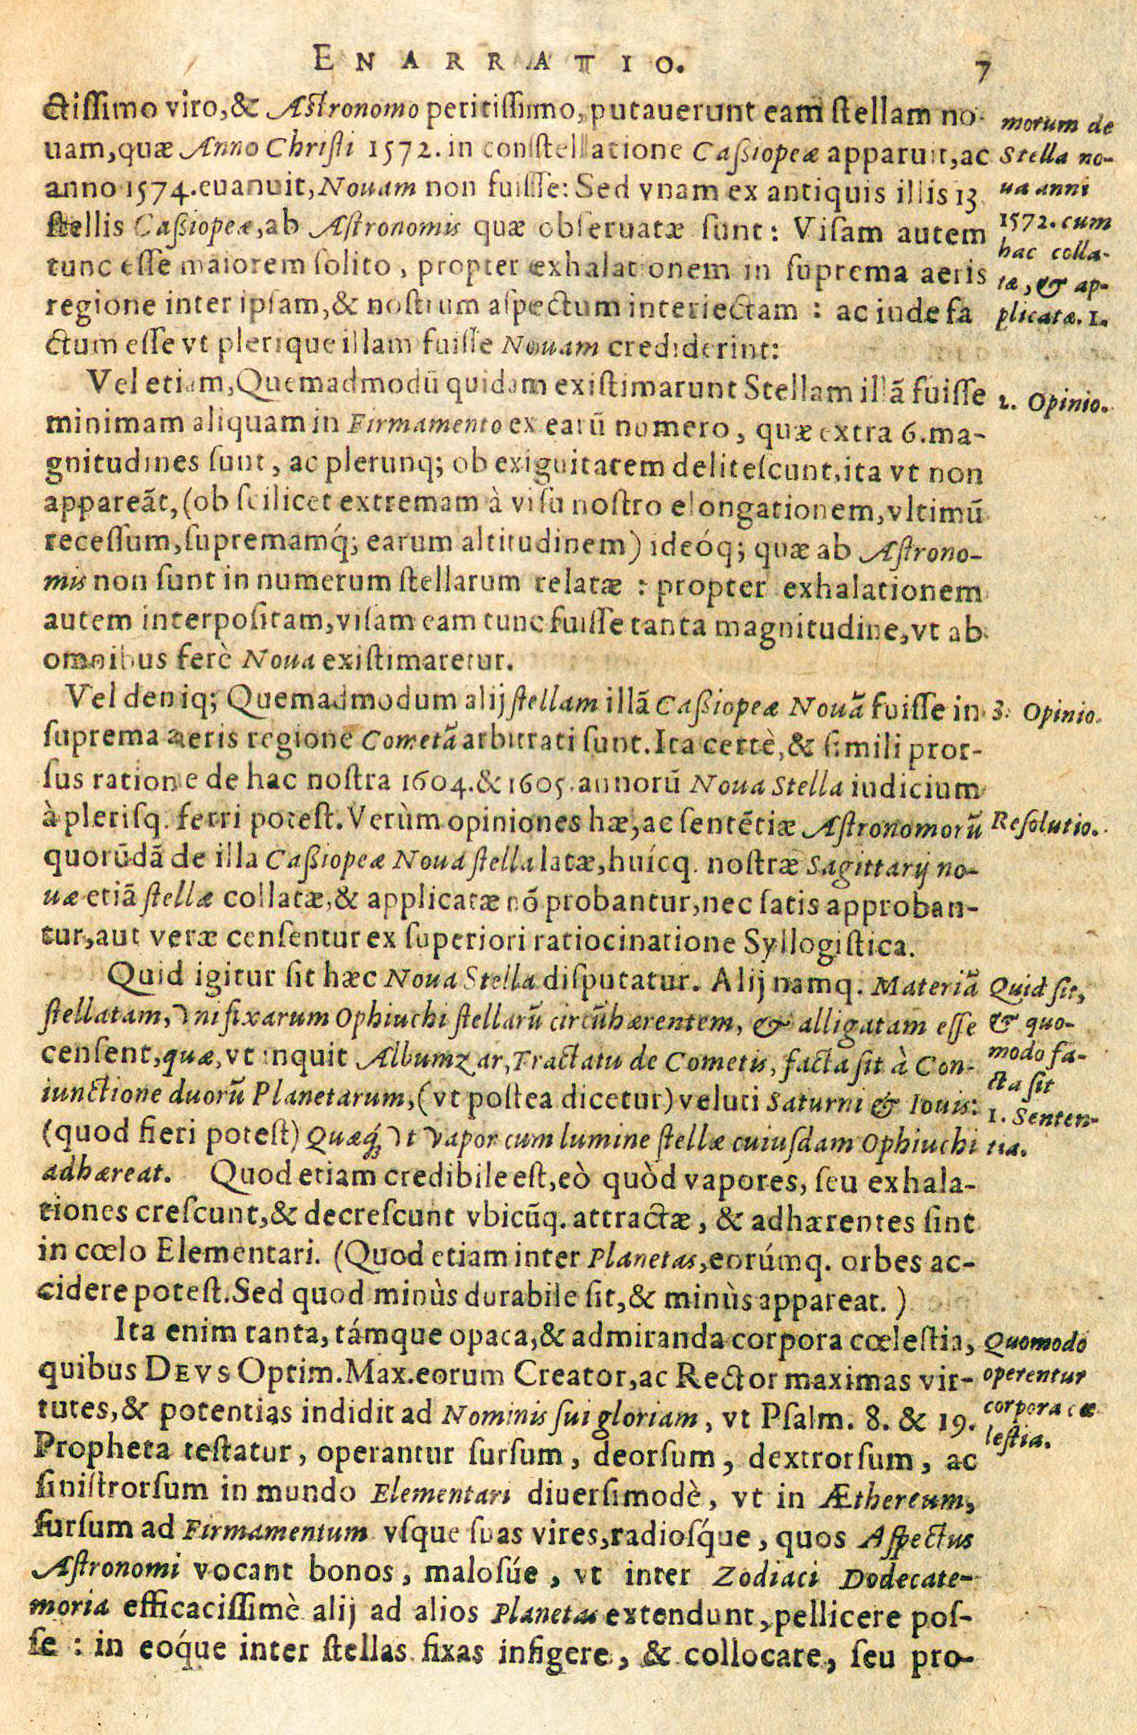 ENARRATIO. 7
ctissimo viro,& Astronomo peritissimo, putauerunt eam stellam no-
uam,quæ Anno Christi 1572. in constellatione Cassiopeæ apparuit,ac
anno 1574.euanuit,Nouam non fuisse: Sed vnam ex antiquis illis 13
stellis Cassiopeæ,ab Astronomis quæ obseruatæ sunt: Visam autem
tunc esse maiorem solito, propter exhalationem in suprema aeris
regione inter ipsam,& nostrum aspectum interiectam : ac inde fa
ctum esse vt plerique illam fuisse Nouam crediderint:
morum de
Stella no-
ua anni
1572. cum
hac colla-
ta, & ap-
plicatæ. 1.
Vel etiam,Quemadmodū quidam existimarunt Stellam illā fuisse
minimam aliquam in Firmamento ex earū numero, quæ extra 6.ma-
gnitudines sunt, ac plerunq; ob exiguitatem delitescunt,ita vt non
appareāt,(ob scilicet extremam à visu nostro elongationem,vltimū
recessum,supremamq́; earum altitudinem) ideóq; quæ ab Astrono-
mis non sunt in numerum stellarum relatæ : propter exhalationem
autem interpositam,visam eam tunc fuisse tanta magnitudine,vt ab
omnibus ferè Noua existimaretur.
2. Opinio.
Vel deniq; Quemadmodum alij stellam illā Cassiopeæ Nouā fuisse in
suprema aeris regione Cometā arbitrati sunt. Ita certè,& simili pror-
sus ratione de hac nostra 1604.& 1605.annorū Noua Stella iudicium
à plerisq. ferri potest. Verùm opiniones hæ,ac sentētiæ Astronomorū
quorūdā de illa Cassiopeæ Noua stella latæ,huícq. nostræ Sagittarij no-
uæ etiā stellæ collatæ,& applicatæ nō probantur,nec satis approban-
tur,aut veræ censentur ex superiori ratiocinatione Syllogistica.
3. Opinio.
Resolutio.
Quid igitur sit hæc Noua Stella disputatur. Alij namq. Materiā
stellatam, vni fixarum Ophiuchi stellarū circūhærentem, & alligatam esse
censent,quæ,vt inquit Albumazar,Tractatu de Cometis, facta sit à Con-
iunctione duorū Planetarum,(vt postea dicetur) veluti Saturni & Iouis:
(quod fieri potest) Quæq́; vt vapor cum lumine stellæ cuiusdam Ophiuchi
adhæreat. Quod etiam credibile est,eò quòd vapores, seu exhala-
tiones crescunt,& decrescunt vbicūq. attractæ, & adhærentes sint
in cœlo Elementari. (Quod etiam inter Planetas,eorúmq. orbes ac-
cidere potest.Sed quod minùs durabile sit,& minùs appareat.)
Quid sit,
& quo-
modo fa-
cta sit
1. Senten-
tia.
Ita enim tanta, támque opaca,& admiranda corpora cœlestia,
quibus DEVS Optim. Max.eorum Creator,ac Rector maximas vir-
tutes,& potentias indidit ad Nominis sui gloriam, vt Psalm. 8. & 19.
Propheta testatur, operantur sursum, deorsum, dextrorsum, ac
sinistrorsum in mundo Elementari diuersimodè, vt in Æthereum,
sursum ad Firmamentum vsque suas vires,radiosq́ue, quos Aspectus
Astronomi vocant bonos, malosúe, vt inter Zodiaci Dodecate-
moria efficacissimè alij ad alios Planetas extendunt,pellicere pos-
se : in eoq́ue inter stellas fixas infigere, & collocare, seu pro-
Quomodo
operentur
corpora cœ
lestia.